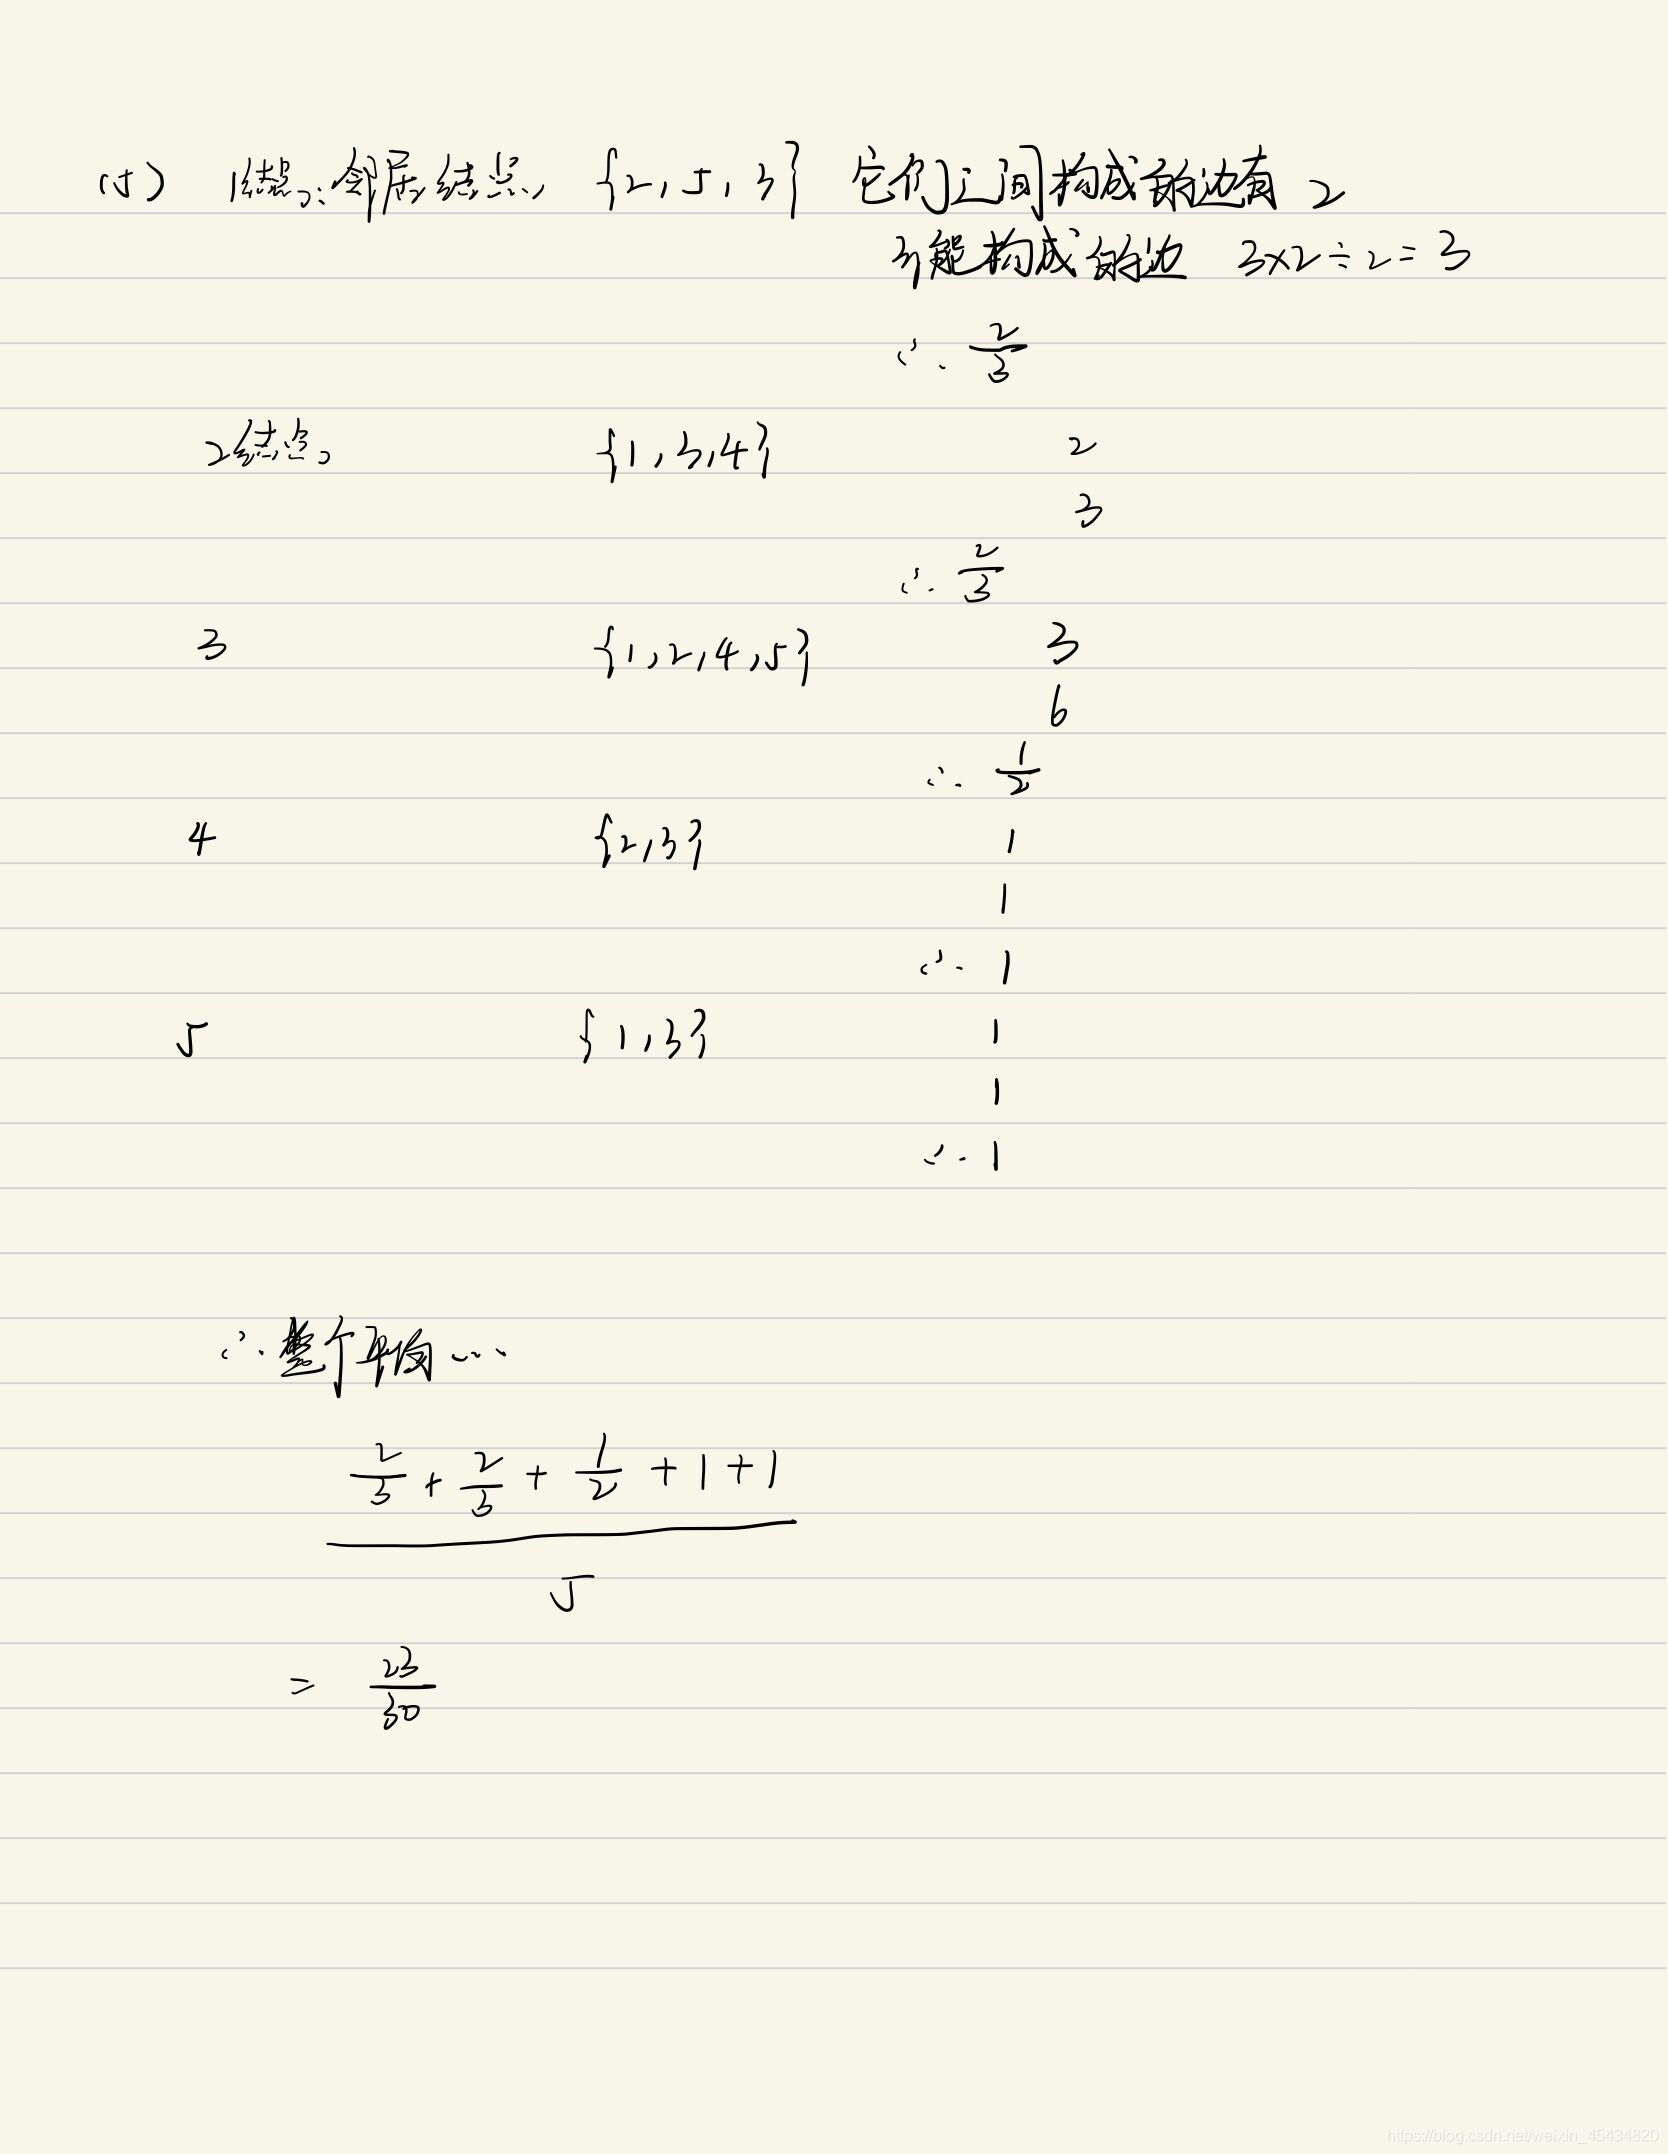 (5) 1结点: 邻居结点 {2, 5, 3} 它们之间构成的边有 2
可能构成的边 3×2÷2=3
∴ 2/3
2结点 {1, 3, 4} 2
3
∴ 2/3
3 {1, 2, 4, 5} 3
6
∴ 1/2
4 {2, 3} 1
1
∴ 1
5 {1, 3} 1
1
∴ 1
∴ 整个平均……
2/3 + 2/3 + 1/2 + 1 + 1
5
= 23/30
https://blog.csdn.net/weixin_45434820